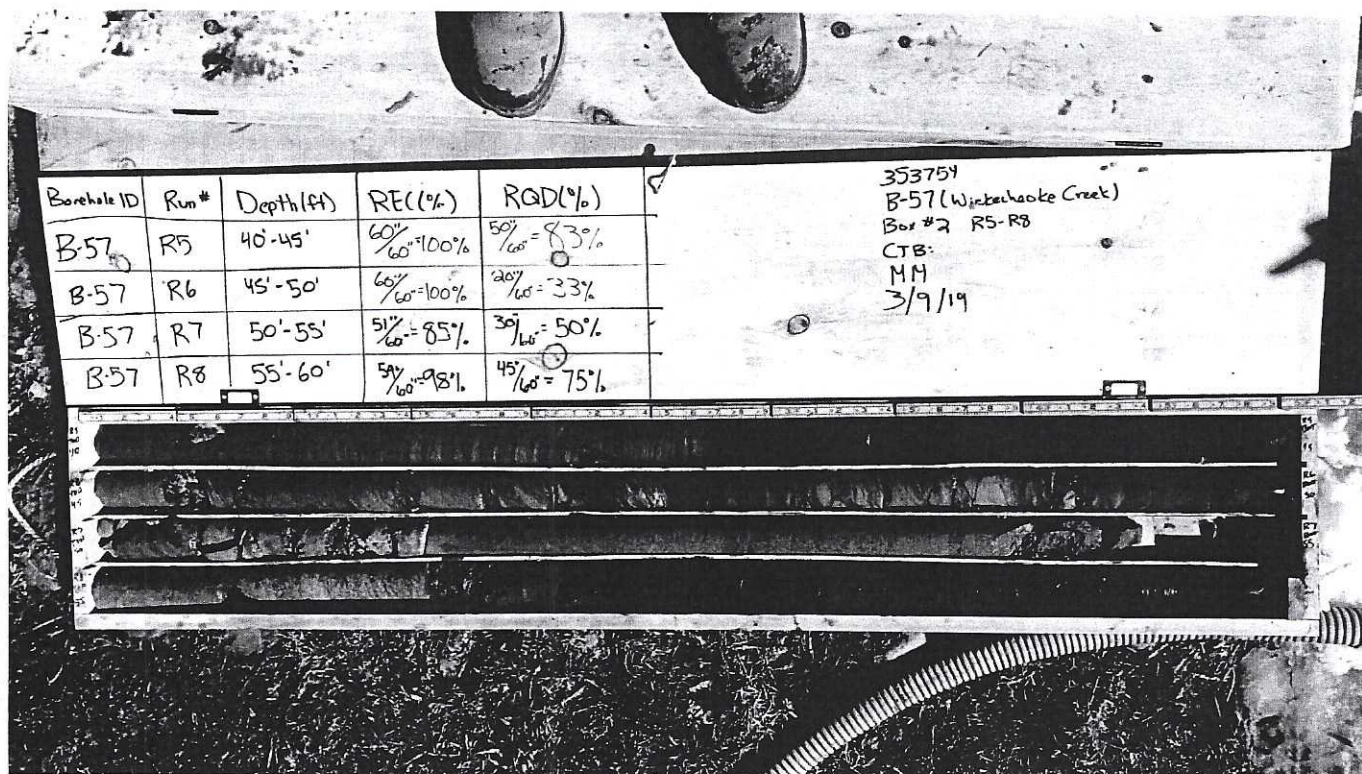 Borehole ID Run# Depth(ft) REC(%) RQD(%)
B-57 R5 40'-45' 60"/60"=100% 50"/60"=83%
B-57 R6 45'-50' 60"/60"=100% 20"/60"=33%
B-57 R7 50'-55' 51"/60"=85% 30"/60"=50%
B-57 R8 55'-60' 59"/60"=98% 45"/60"=75%
353754
B-57 (Wickecheoke Creek)
Box #2 R5-R8
CTB:
MM
3/9/19